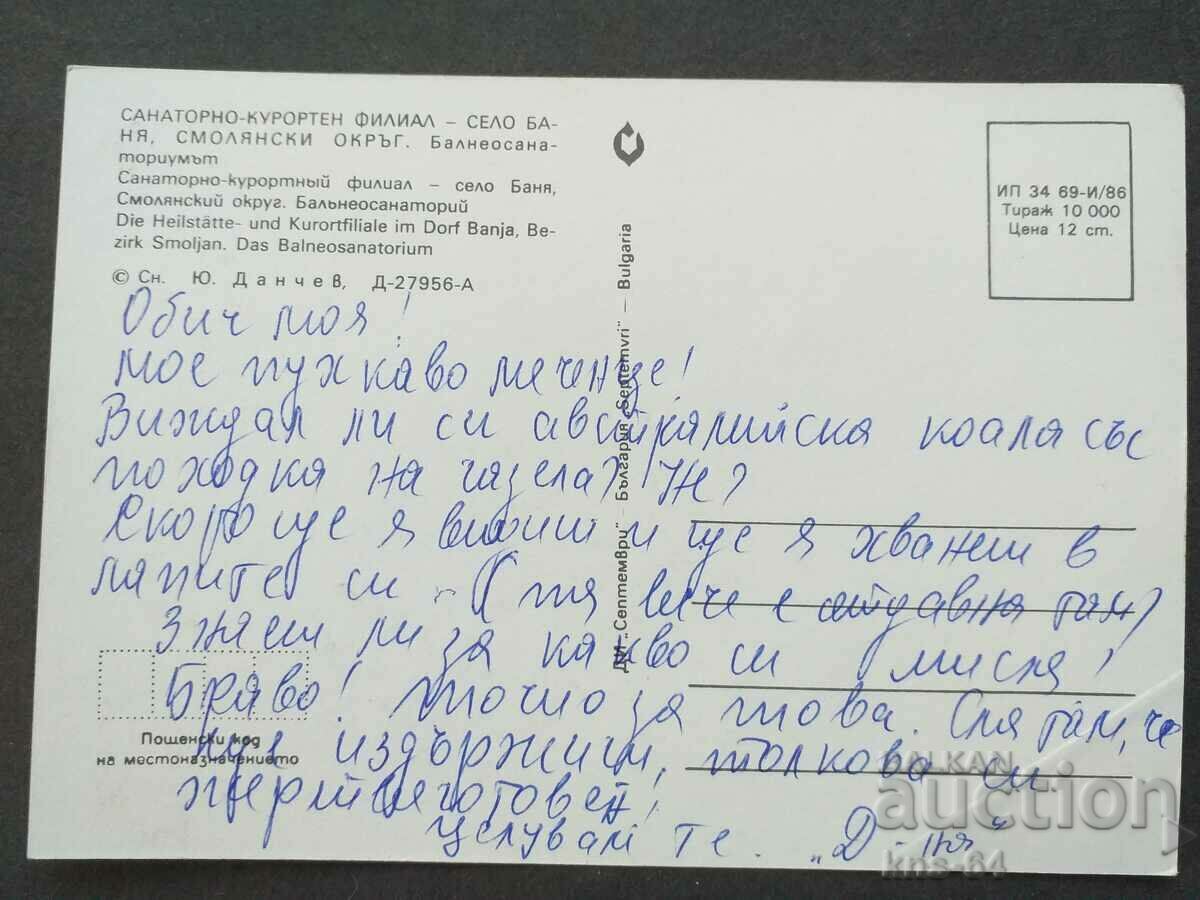 САНАТОРНО-КУРОРТЕН ФИЛИАЛ – СЕЛО БА-
НЯ, СМОЛЯНСКИ ОКРЪГ. Балнеосана-
ториумът
Санаторно-курортный филиал – село Баня,
Смолянский округ. Бальнеосанаторий
Die Heilstätte- und Kurortfiliale im Dorf Banja, Be-
zirk Smoljan. Das Balneosanatorium
© Сн. Ю. Данчев, Д-27956-А
ИП 34 69-И/86
Тираж 10 000
Цена 12 ст.
ДИ „Септември" — България „Septemvri" — Bulgaria
Обич моя!
мое пухкаво меченце!
Виждал ли си австралийска коала със
походка на газела?
Скоро ще я видиш и ще я хванеш в
лапите си (тя вече е отдавна там)
Знаеш ли за какво си мисля!
Браво! Точно за това. Спя там, че
издържиш, толкова си
жертвеготовен!
Целувам те. „Д-ня"
Пощенски код
на местоназначението
BALKAN
auction
kns-64